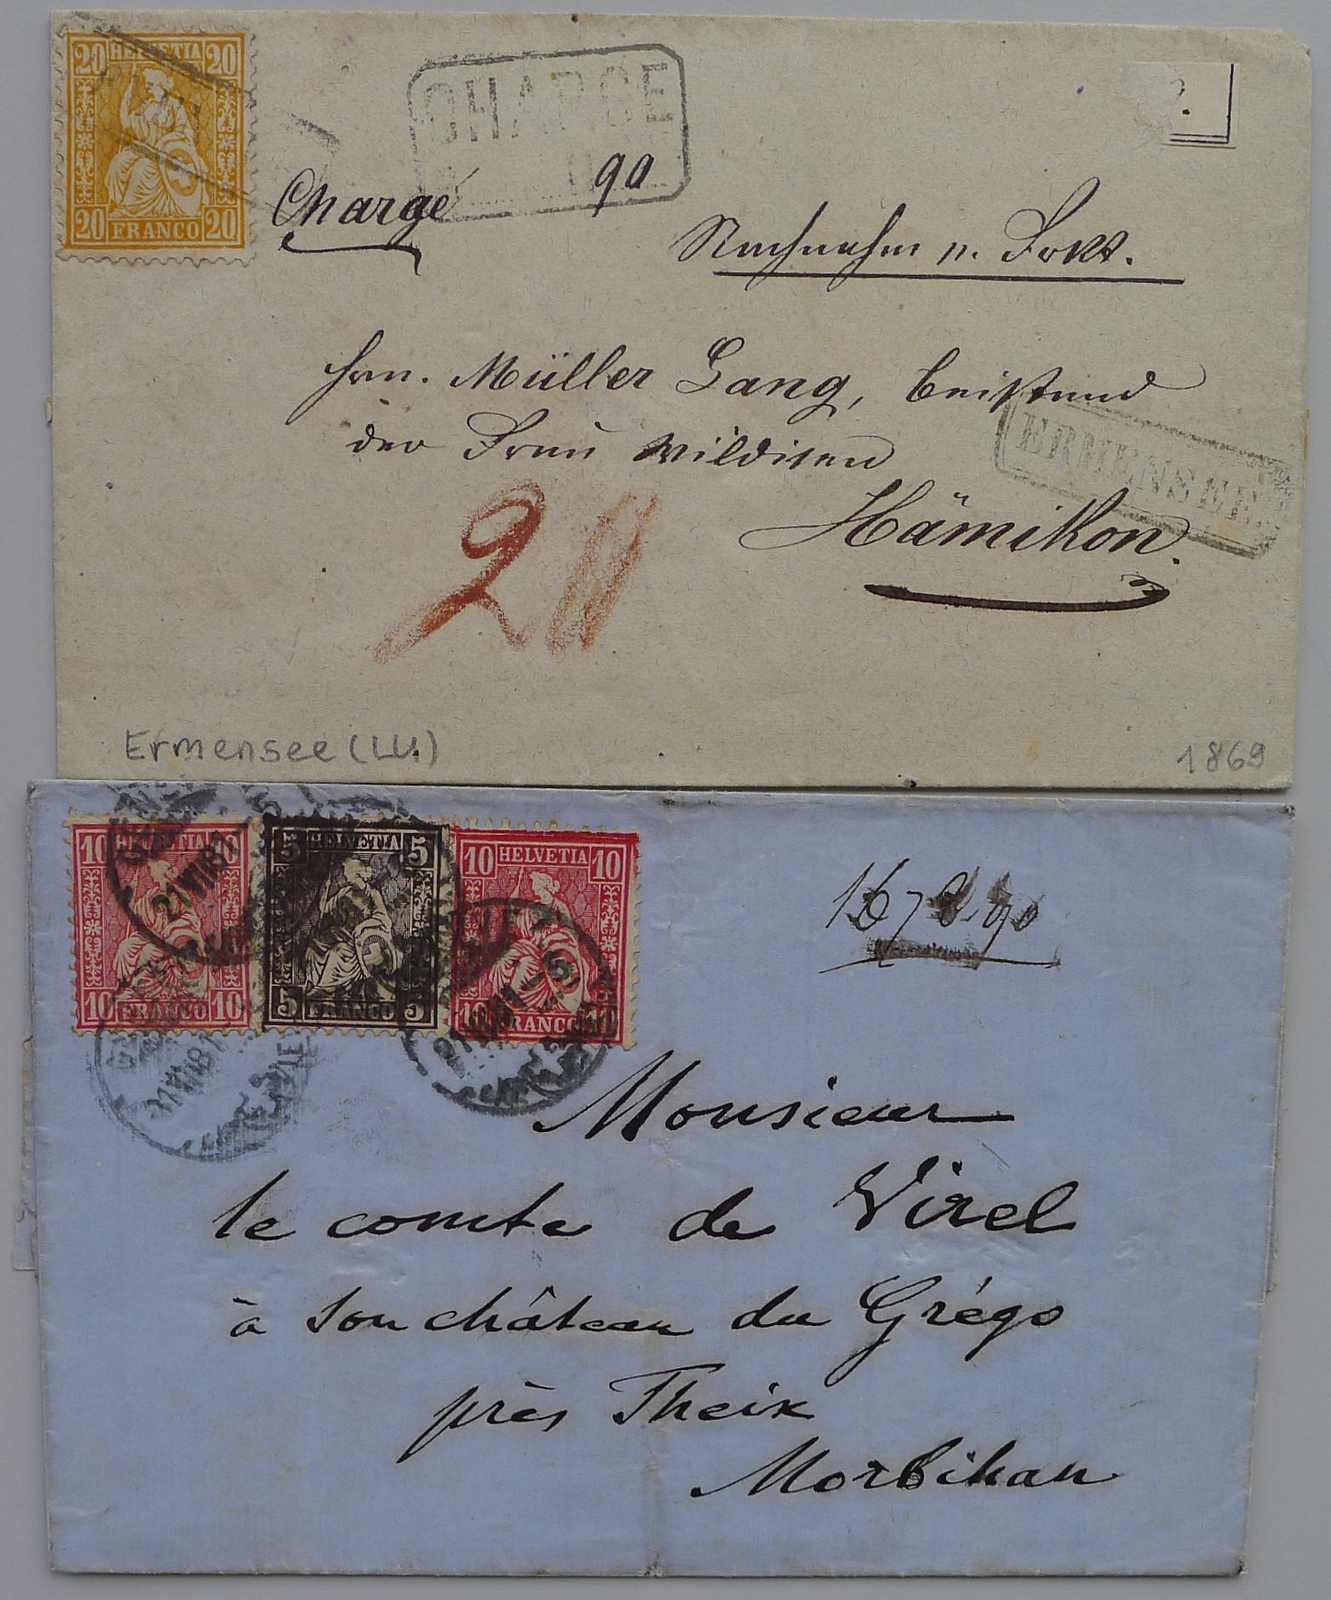 20 HELVETIA 20
20 FRANCO 20
CHARGE
Chargé
90
Nachnahm u. Fokt.
Hrn. Müller Lang, Beistand
der Frau Wildisen
ERMENSEE
Hämikon.
20
Ermensee (LU.)
1869
10 HELVETIA 10
10 FRANCO 10
5 HELVETIA 5
5 FRANCO 5
10 HELVETIA 10
10 FRANCO 10
21 VII 81
Monsieur
le comte de Virel
à son château du Grégo
près Theix
Morbihan